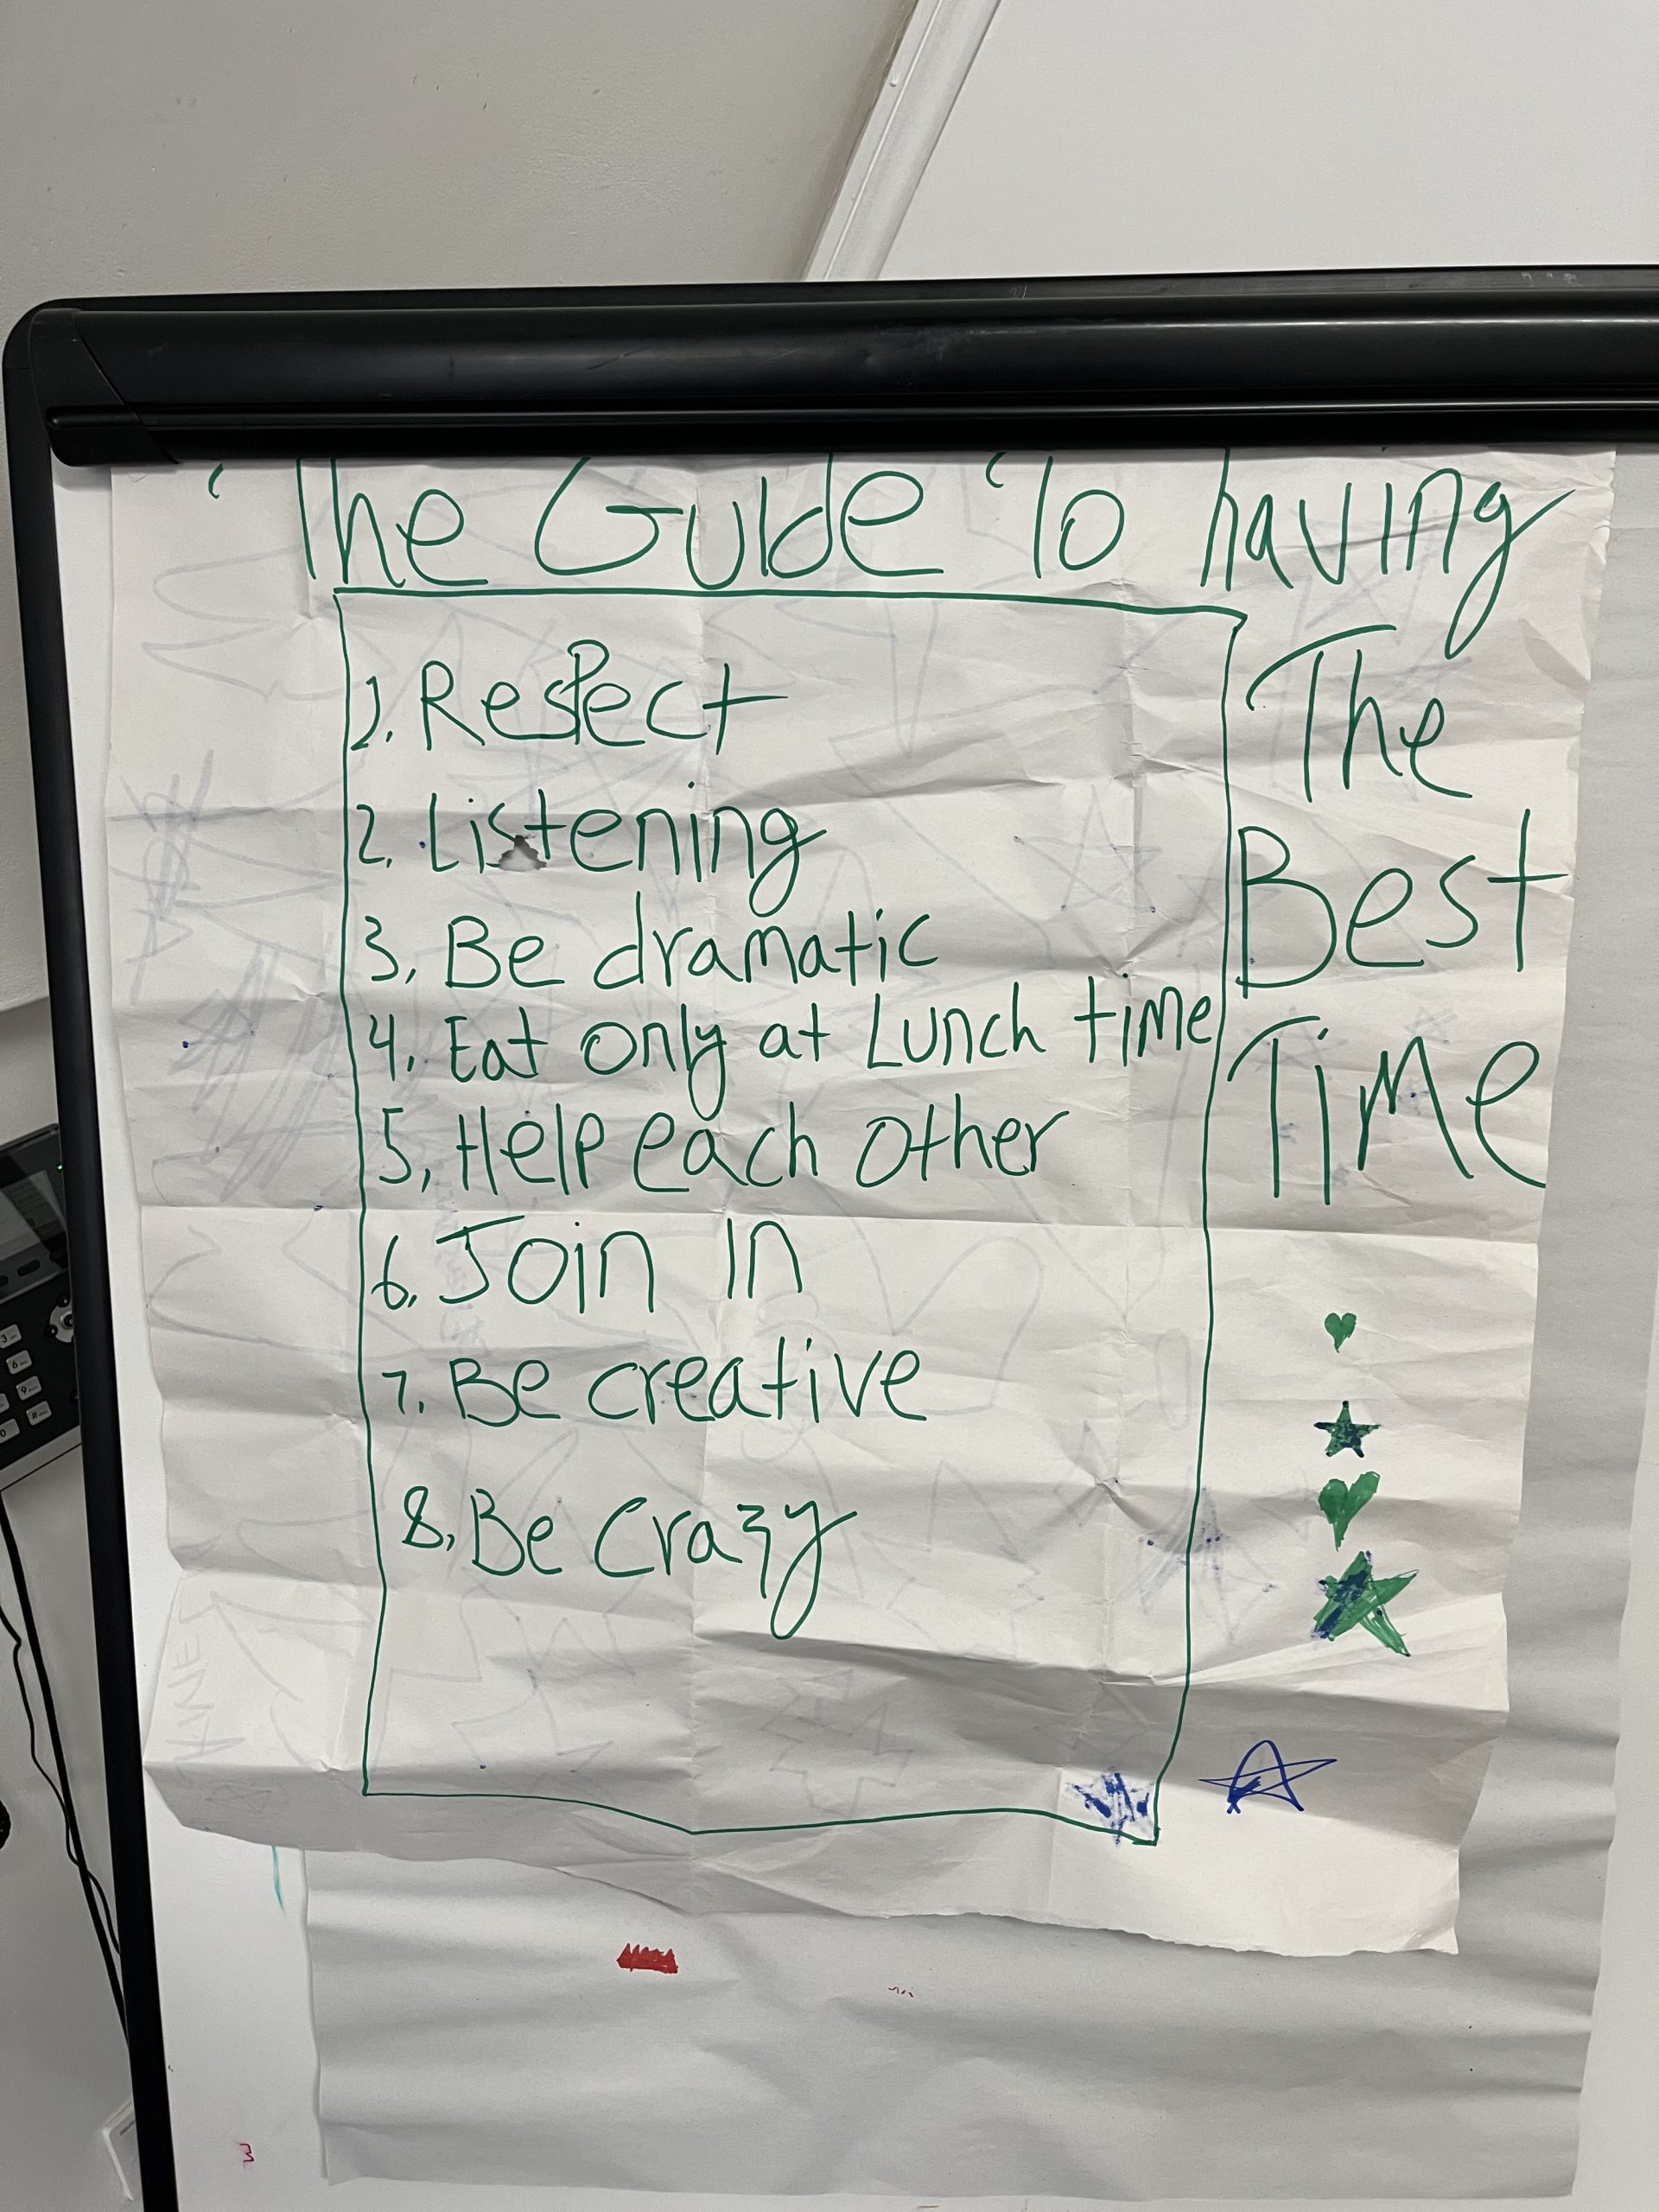 The Guide To having
The
Best
Time
1. Respect
2. Listening
3. Be dramatic
4. Eat only at Lunch time
5. Help each other
6. Join in
7. Be creative
8. Be crazy